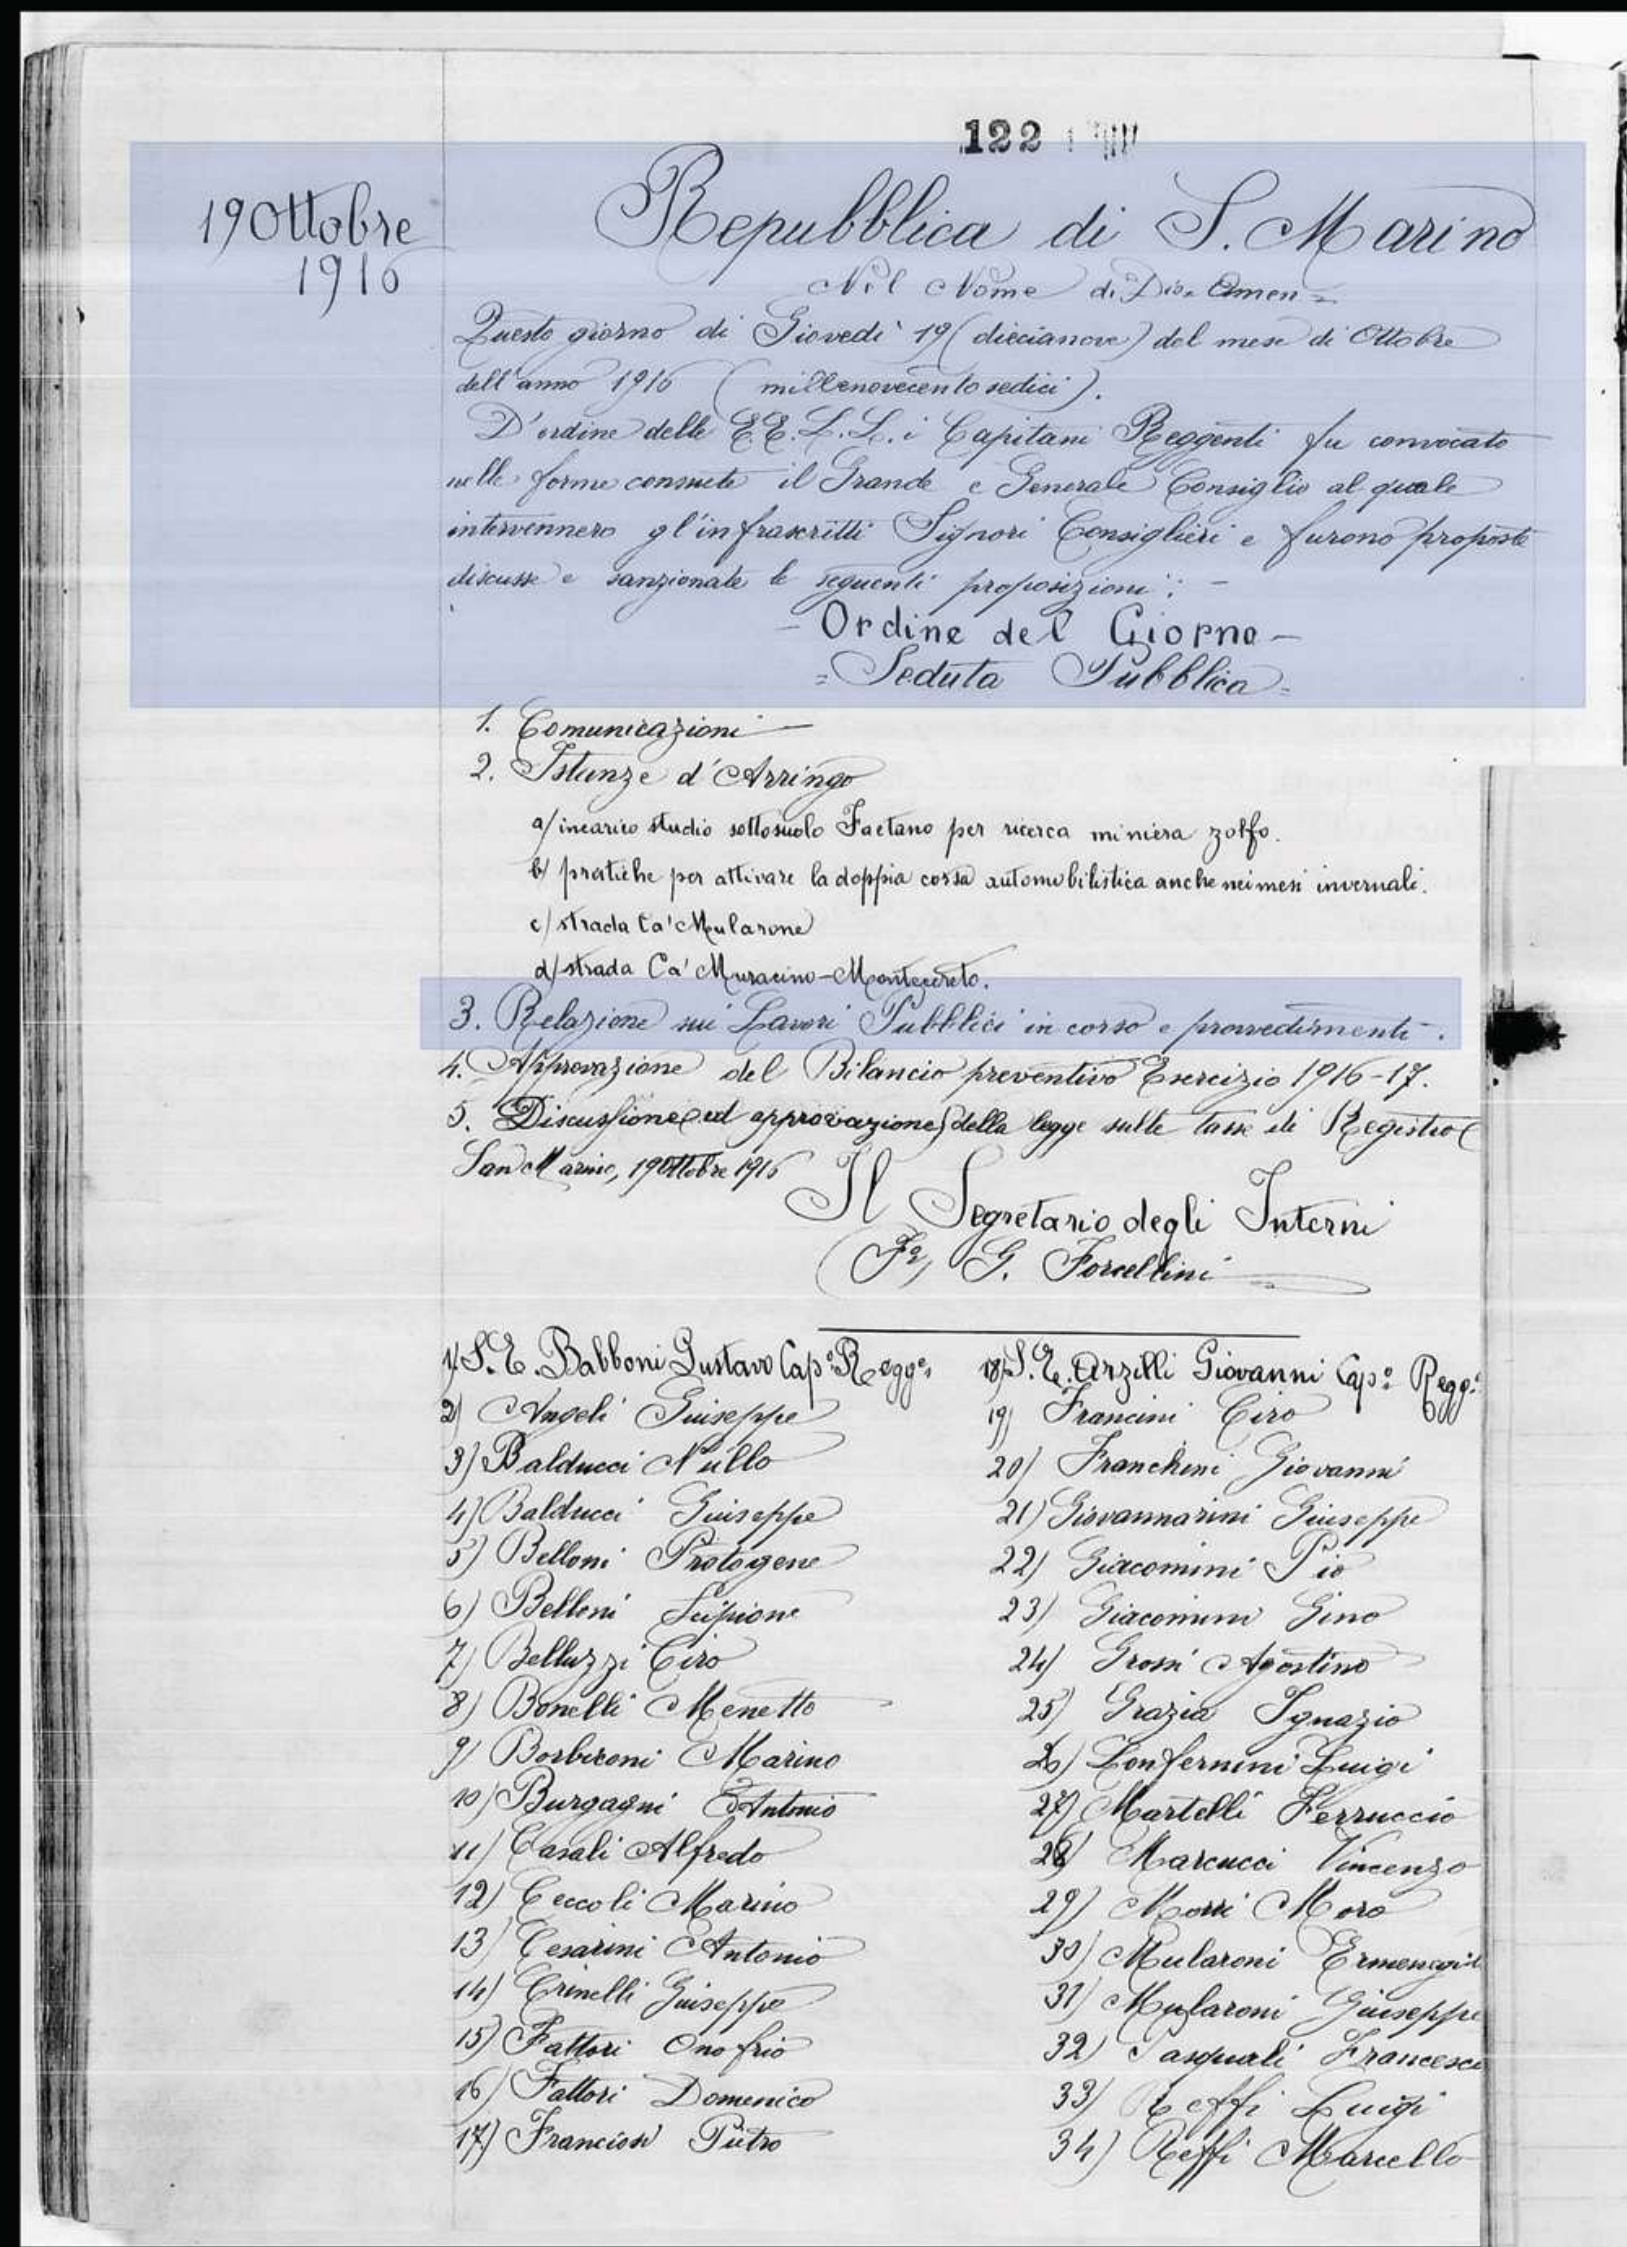 122
19 Ottobre
1916
Repubblica di S. Marino
Nel Nome di Dio. Amen =
Questo giorno di Giovedi' 19 (diecianove) del mese di Ottobre
dell'anno 1916 (millenovecentosedici).
D'ordine delle E.E. L.L. i Capitani Reggenti fu convocato
nelle forme consuete il Grande e Generale Consiglio al quale
intervennero gl'infrascritti Signori Consiglieri e furono proposte
discusse e sanzionate le seguenti proposizioni: -
- Ordine del Giorno -
= Seduta Pubblica =
1. Comunicazioni
2. Istanze d'Arringo
a/ incarico studio sottosuolo Faetano per ricerca miniera zolfo.
b/ pratiche per attivare la doppia corsa automobilistica anche nei mesi invernali.
c/ strada Ca' Mularone
d/ strada Ca' Muracino - Montecereto.
3. Relazione sui Lavori Pubblici in corso e provvedimenti.
4. Approvazione del Bilancio preventivo Esercizio 1916-17.
5. Discussione ed approvazione della legge sulle tasse di Registro
San Marino, 19 Ottobre 1916
Il Segretario degli Interni
Fo, G. Forcellini
1) S. E. Babboni Gustavo Cap.º Regg.e
2) Angeli Giuseppe
3) Balducci Nullo
4) Balducci Giuseppe
5) Belloni Protogene
6) Belloni Scipione
7) Belluzzi Ciro
8) Bonelli Menetto
9) Borbiconi Marino
10) Burgagni Antonio
11) Casali Alfredo
12) Ceccoli Marino
13) Cesarini Antonio
14) Crinelli Giuseppe
15) Fattori Onofrio
16) Fattori Domenico
17) Franciosi Pietro
18) S. E. Arzilli Giovanni Cap.º Regg.e
19) Francini Ciro
20) Franchini Giovanni
21) Giovannarini Giuseppe
22) Giacomini Pio
23) Giacomini Gino
24) Grossi Agostino
25) Grazia Ignazio
26) Lonfernini Luigi
27) Martelli Ferruccio
28) Marcucci Vincenzo
29) Morri Moro
30) Mularoni Ermenegil
31) Mularoni Giuseppe
32) Pasquali Francesco
33) Reffi Luigi
34) Reffi Marcello